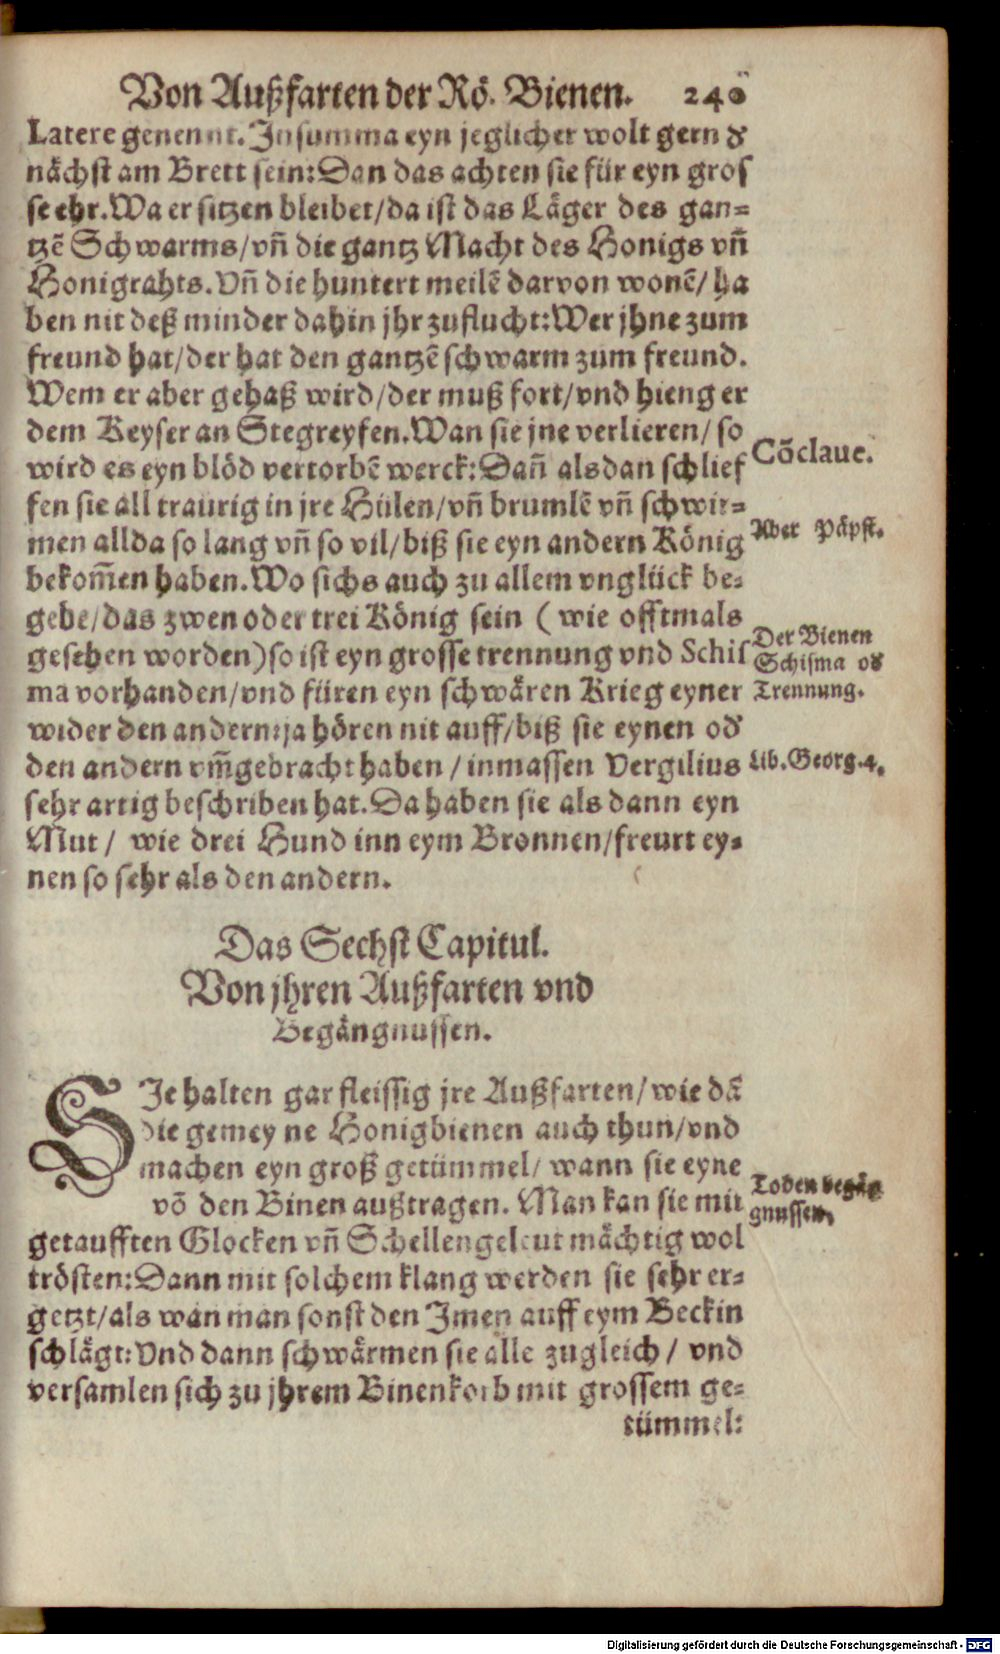 Von Außfarten der Rö. Bienen. 240
Latere genennt. Jn summa eyn jeglicher wolt gern d'
nächst am Brett sein: Dan das achten sie für eyn gros
se ehr. Wa er sitzen bleibet/da ist das Läger des gan=
tzẽ Schwarms/vñ die gantz Macht des Honigs vñ
Honigrahts. Vñ die huntert meilẽ darvon wonẽ/ ha
ben nit deß minder dahin jhr zuflucht: Wer jhne zum
freund hat/der hat den gantzẽ schwarm zum freund.
Wem er aber gehaß wird/der muß fort/vnd hieng er
dem Keyser an Stegreyfen. Wan sie jne verlieren/ so
wird es eyn blöd vertorbẽ werck: Dañ alsdan schlief
fen sie all traurig in jre Hülen/vñ brumlẽ vñ schwir=
men allda so lang vñ so vil/biß sie eyn andern König
bekom̃en haben. Wo sichs auch zu allem vnglück be=
gebe/das zwen oder trei König sein ( wie offtmals
gesehen worden) so ist eyn grosse trennung vnd Schis
ma vorhanden/vnd füren eyn schwären Krieg eyner
wider den andern: ja hören nit auff/biß sie eynen od'
den andern vm̃gebracht haben / inmassen Vergilius
sehr artig beschriben hat. Da haben sie als dann eyn
Mut / wie drei Hund inn eym Bronnen/freurt ey=
nen so sehr als den andern.
Cõclave.
Aber Päpst.
Der Bienen
Schisma od'
Trennung.
Lib. Georg. 4.
Das Sechst Capitul.
Von jhren Außfarten vnd
Begängnussen.
SJe halten gar fleissig jre Außfarten/ wie dã
die gemeyne Honigbienen auch thun/vnd
machen eyn groß getümmel/ wann sie eyne
võ den Binen außtragen. Man kan sie mit
getaufften Glocken vñ Schellengeleut mächtig wol
trösten: Dann mit solchem klang werden sie sehr er=
getzt/als wan man sonst den Jmen auff eym Beckin
schlägt: Vnd dann schwärmen sie alle zugleich / vnd
versamlen sich zu jhrem Binenkorb mit grossem ge=
tümmel:
Toden begäng
gnussen.
Digitalisierung gefördert durch die Deutsche Forschungsgemeinschaft - DFG